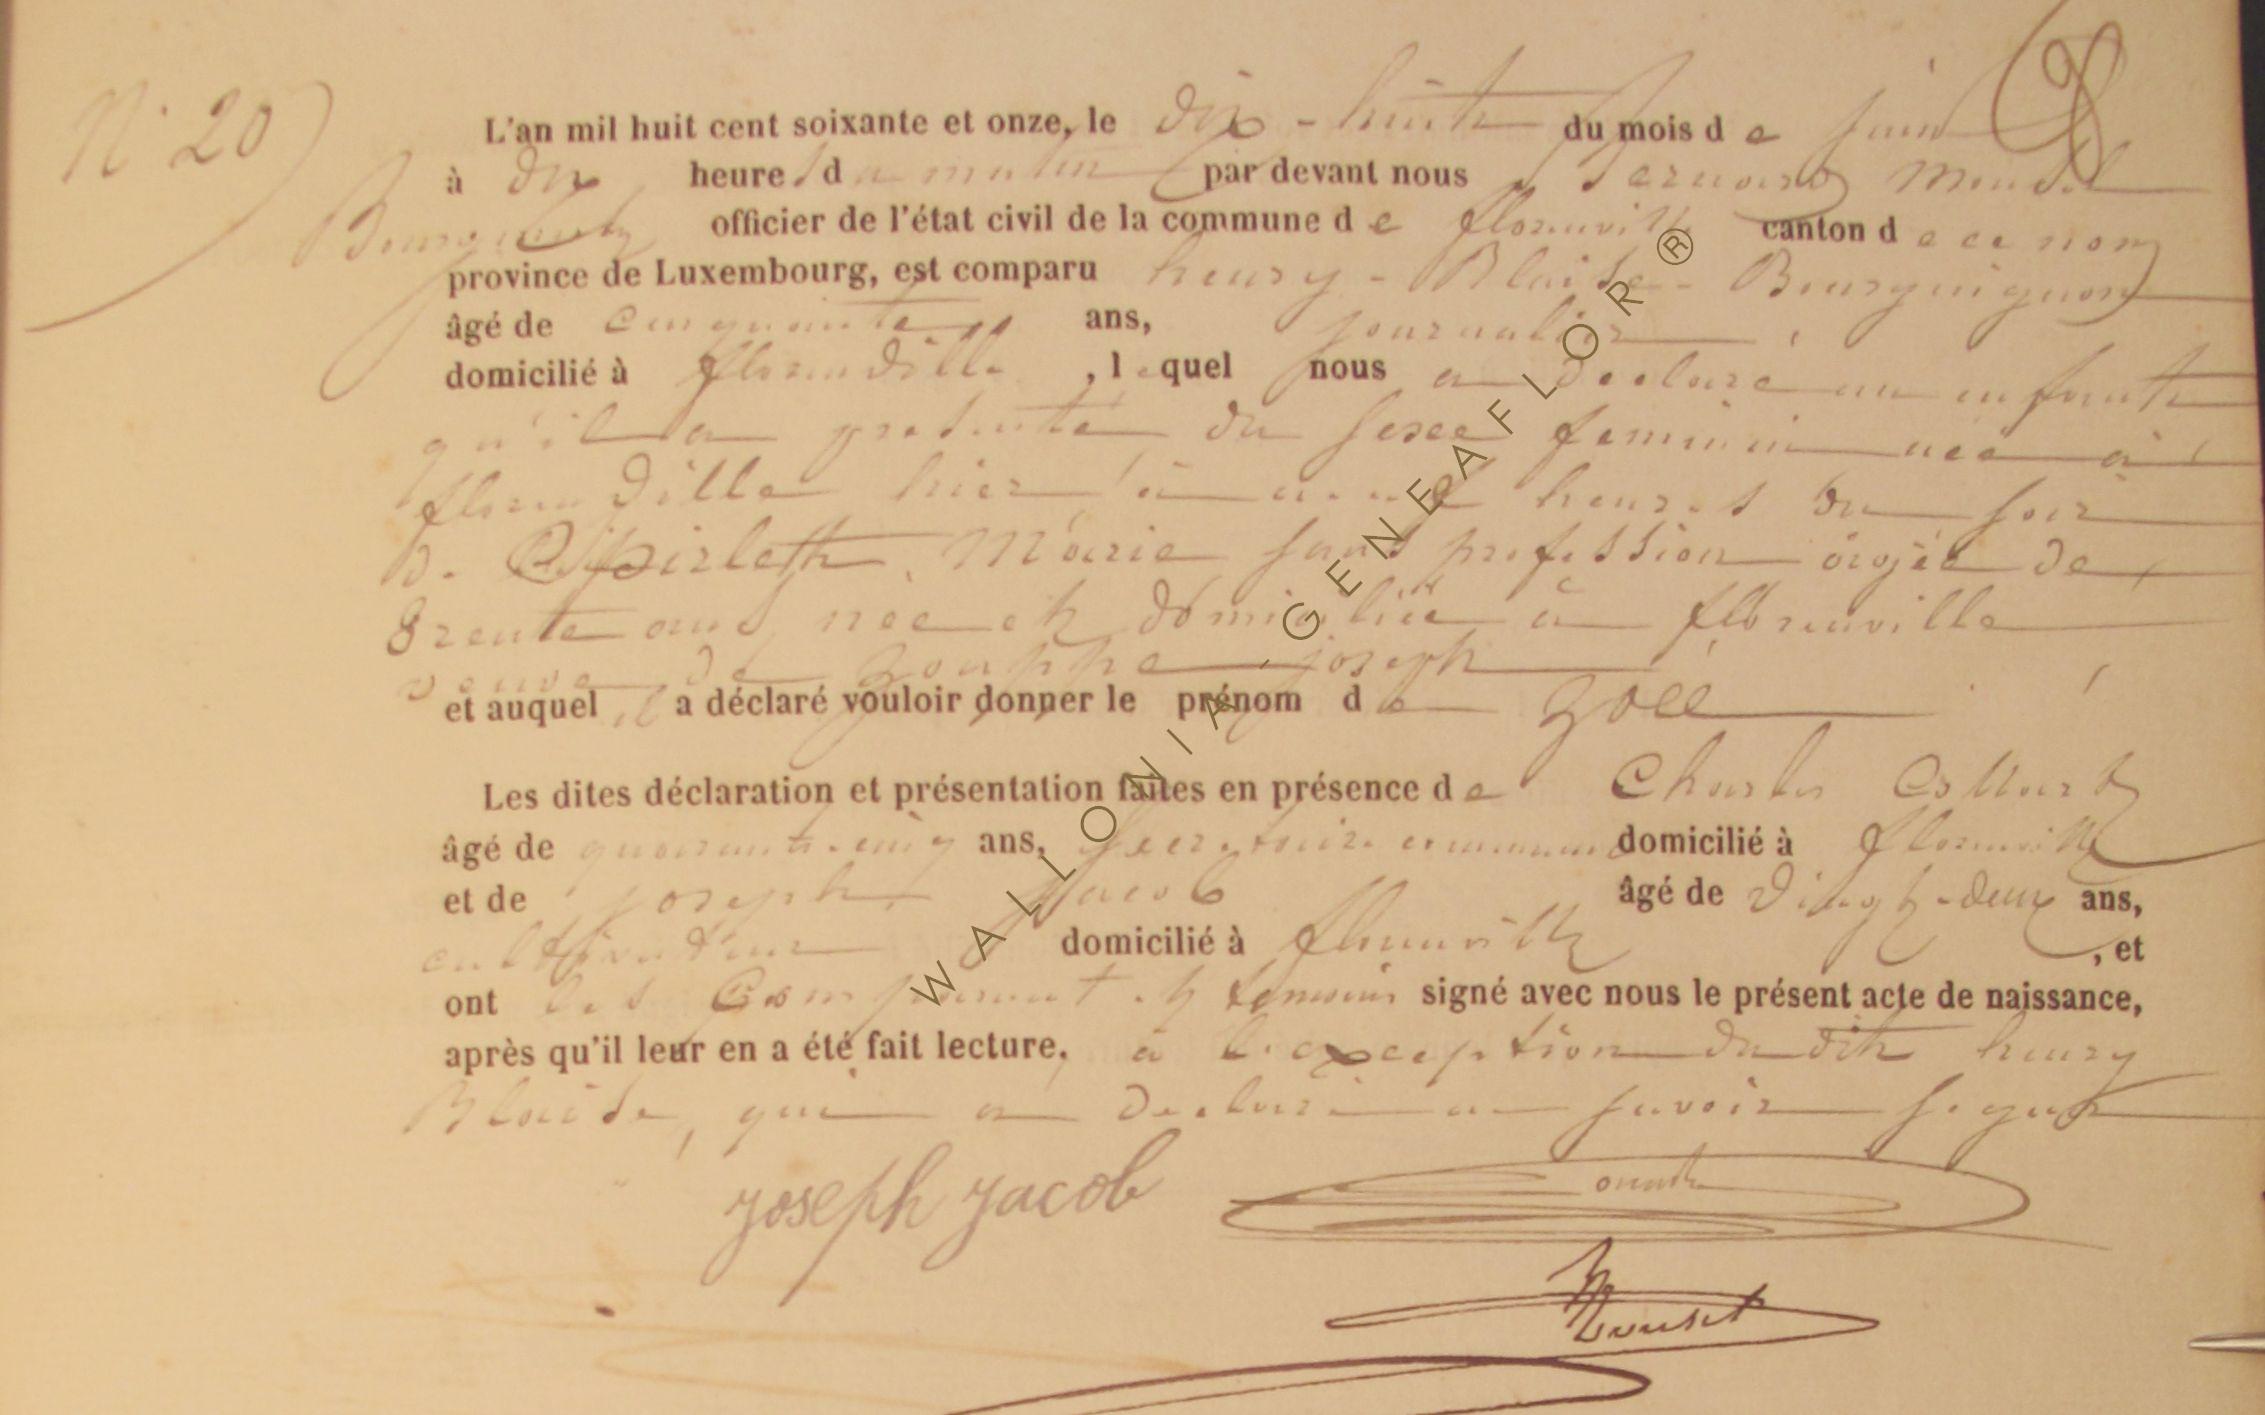 N° 20
L'an mil huit cent soixante et onze, le dix-huit du mois de juin
à dix heures du matin par devant nous
officier de l'état civil de la commune de florenville canton de ce nom
province de Luxembourg, est comparu henry - Blaise - Bourguignon
âgé de cinquante ans, journalier
domicilié à florenville, lequel nous a declaré un enfant
qu'il a presenté du sexe feminin née à
florenville hier à heures du soir
de Marie sans profession agée de
trente ans née et domiciliée à florenville
veuve de joseph
et auquel il a déclaré vouloir donner le prénom de Zoée
Les dites déclaration et présentation faites en présence de Charles
âgé de quarante-cinq ans, secretaire communal domicilié à florenville
et de joseph Jacob âgé de vingt-deux ans,
cultivateur domicilié à florenville, et
ont les Comparant et temoins signé avec nous le présent acte de naissance,
après qu'il leur en a été fait lecture, a l'exception du dit henry
Blaise, qui a declaré ne savoir signer
joseph jacob
WALLONIA-GENEAFLOR®